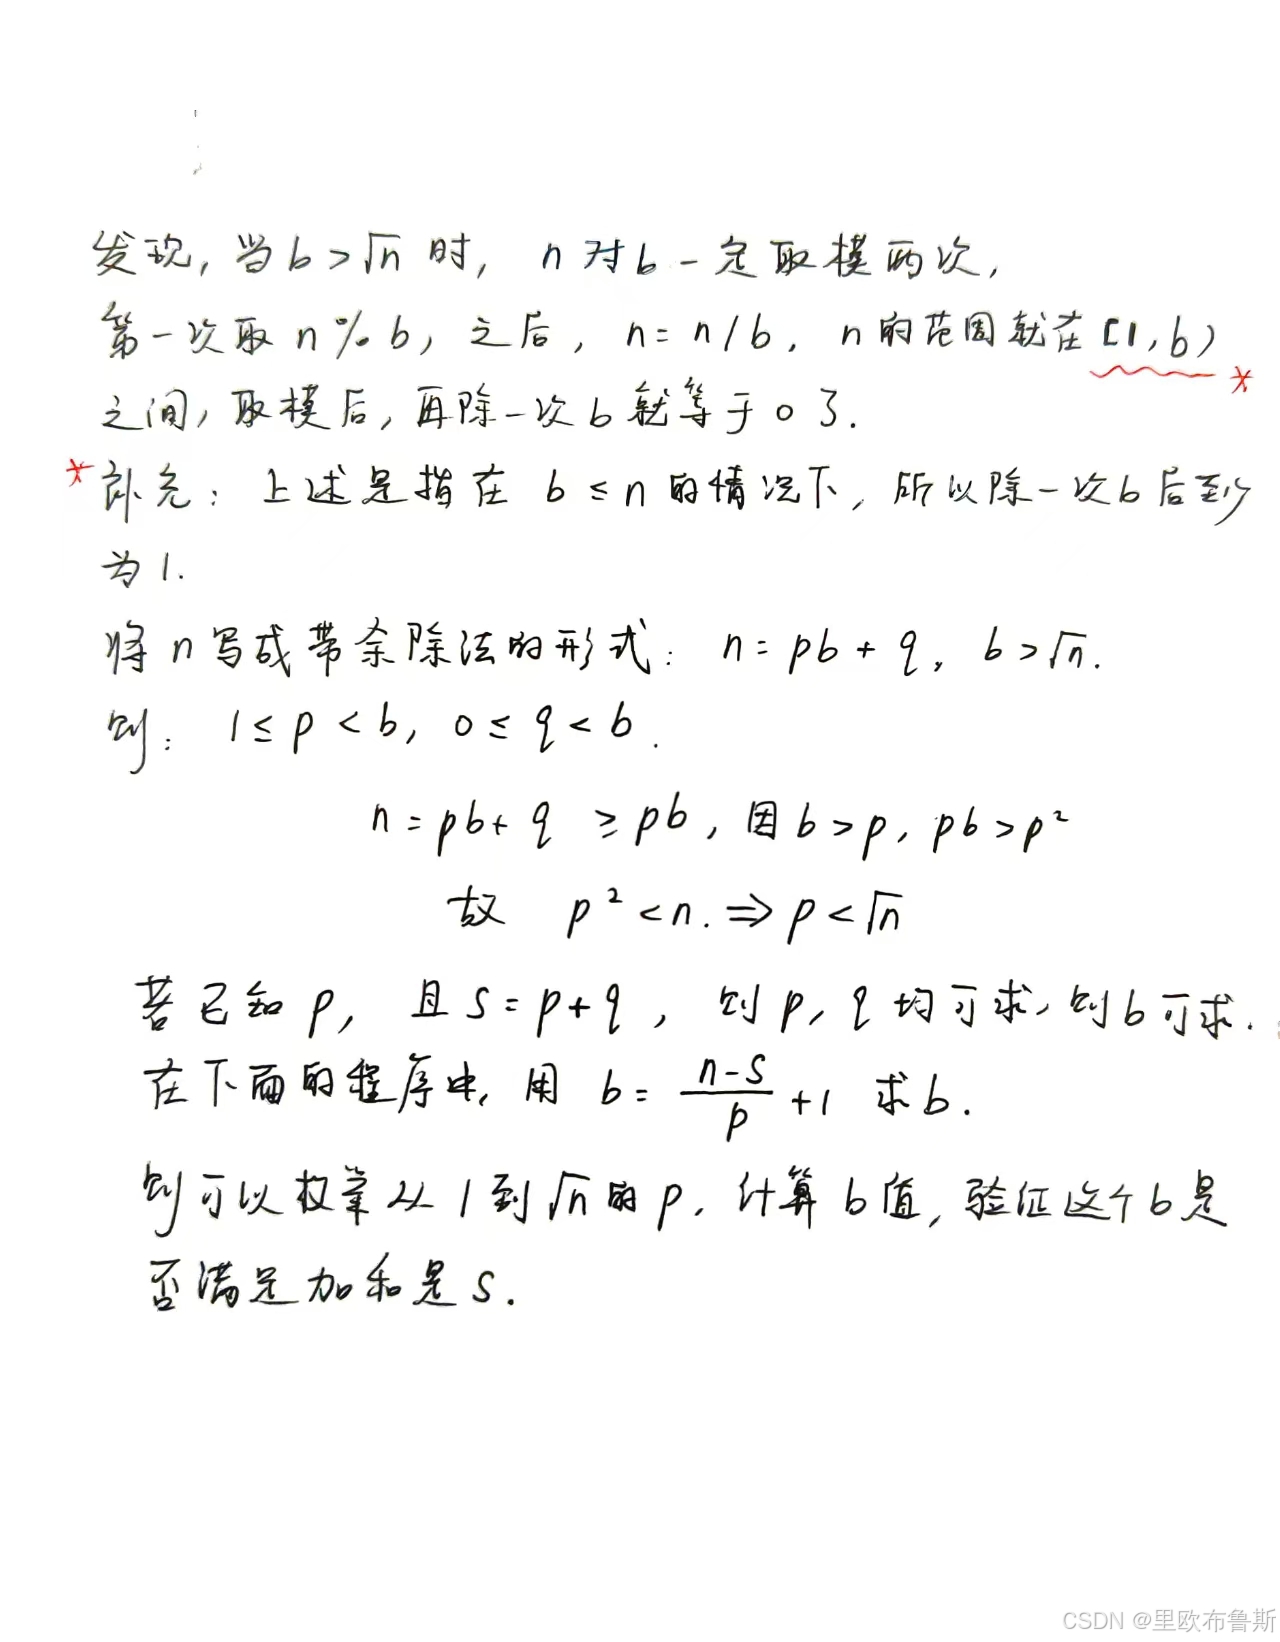 发现，当 b > √n 时， n 对 b 一定取模两次，
第一次取 n % b，之后， n = n / b， n 的范围就在 [1, b)
之间，取模后，再除一次 b 就等于 0 了.
补充：上述是指在 b ≤ n 的情况下，所以除一次 b 后至少
为 1.
将 n 写成带余除法的形式： n = pb + q， b > √n.
则： 1 ≤ p < b， 0 ≤ q < b.
n = pb + q ≥ pb，因 b > p， pb > p²
故 p² < n. ⇒ p < √n
若已知 p， 且 S = p + q， 则 p，q 均可求，则 b 可求.
在下面的程序中，用 b = (n-S)/p + 1 求 b.
则可以枚举从 1 到 √n 的 p，计算 b 值，验证这个 b 是
否满足加和是 S.
CSDN @里欧布鲁斯